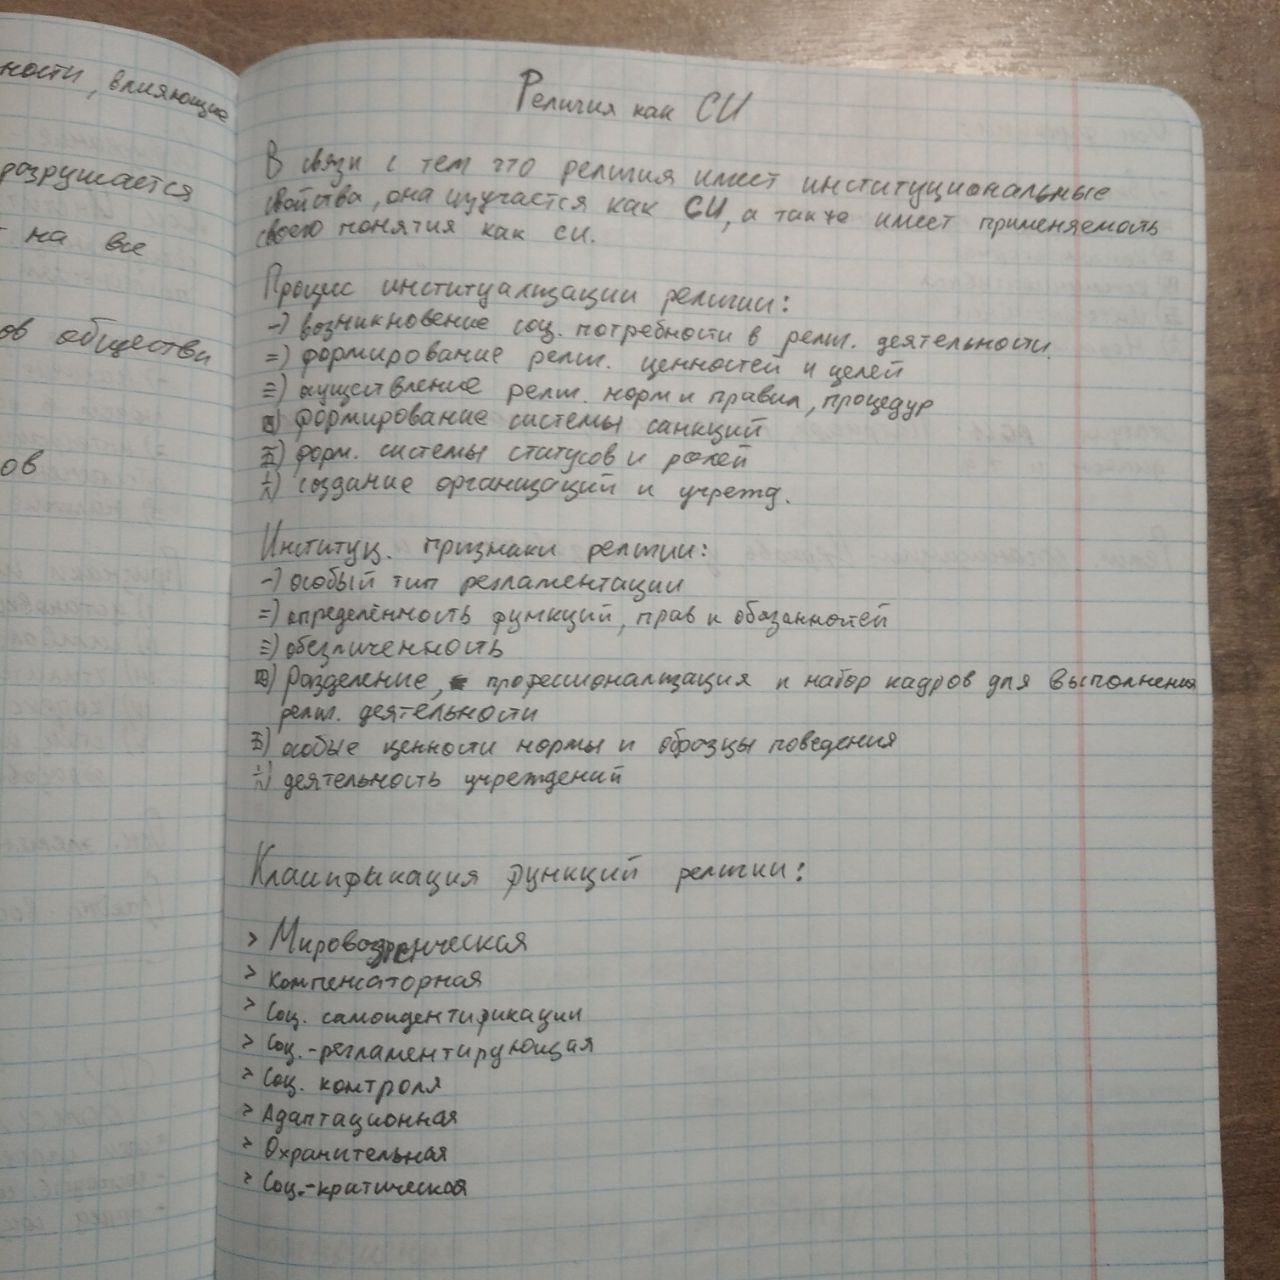 ности, влияющие
разрушается
на все
ов обществ
ов
Религия как СИ
В связи с тем что религия имеет институциональные
свойства, она изучается как СИ, а также имеет применяемость
своего понятия как си.
Процесс институализации религии:
一) возникновение соц. потребности в религ. деятельности.
二) формирование религ. ценностей и целей
三) осуществление религ. норм и правил, процедур
四) формирование системы санкций
五) форм. системы статусов и ролей
六) создание организаций и учрежд.
Институц. признаки религии:
一) особый тип регламентации
二) определённость функций, прав и обязанностей
三) обезличенность
四) Разделение, профессионализация и набор кадров для выполнения
религ. деятельности
五) особые ценности нормы и образцы поведения
六) деятельность учреждений
Классификация функций религии:
> Мировоззренческая
> Компенсаторная
> Соц. самоидентификации
> Соц.-регламентирующая
> Соц. контроля
> Адаптационная
> Охранительная
> Соц.-критическая